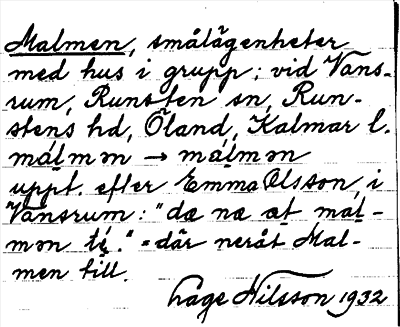 Malmen, smålägenheter
med hus i grupp; vid Vans-
rum, Runsten sn, Run-
stens hd, Öland, Kalmar l.
málmən → málmən
uppt. efter Emma Olsson, i
Vansrum: "dæ næ at mál-
mən té." = där neråt Mal-
men till.
Låge Nilsson 1932